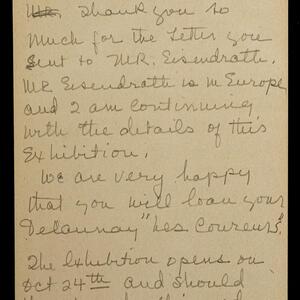 Thank you so
Much for the letter you
sent to MR. Eisendrath.
MR Eisendrath is in Europe
and I am continuing
with the details of this
Exhibition.
We are very happy
that you will loan your
Delaunay "Les Coureurs".
The Exhibition opens on
Oct 24th and should